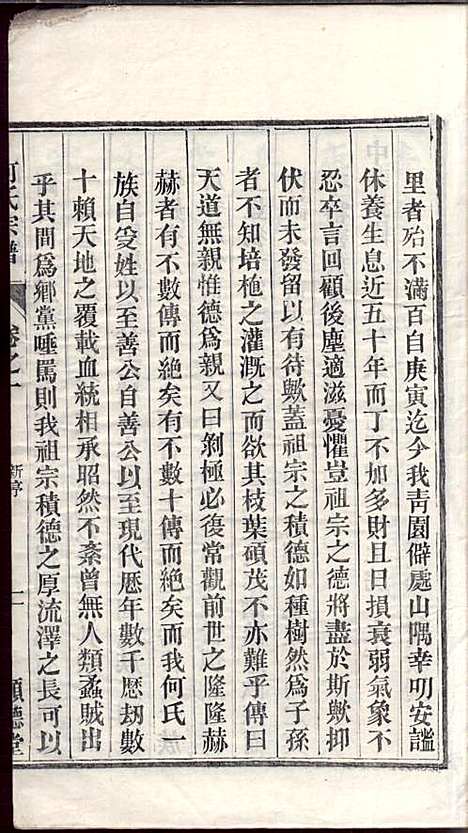 里者殆不滿百自庚寅迄今我靑園僻處山隅幸明安謐
休養生息近五十年而丁不加多財且日損衰弱氣象不
忍卒言回顧後塵適滋憂懼豈祖宗之德將盡於斯歟抑
伏而未發留以有待歟蓋祖宗之積德如種樹然爲子孫
者不知培植之灌溉之而欲其枝葉碩茂不亦難乎傳曰
天道無親惟德爲親又曰剝極必復常觀前世之隆隆赫
赫者有不數傳而絶矣有不數十傳而絶矣而我何氏一
族自受姓以至善公自善公以至現代歷年數千歷刼數
十賴天地之覆載血統相承昭然不紊曾無人類蟊賊出
乎其間爲鄉黨唾罵則我祖宗積德之厚流澤之長可以
何氏宗譜
卷之一
新序
德堂